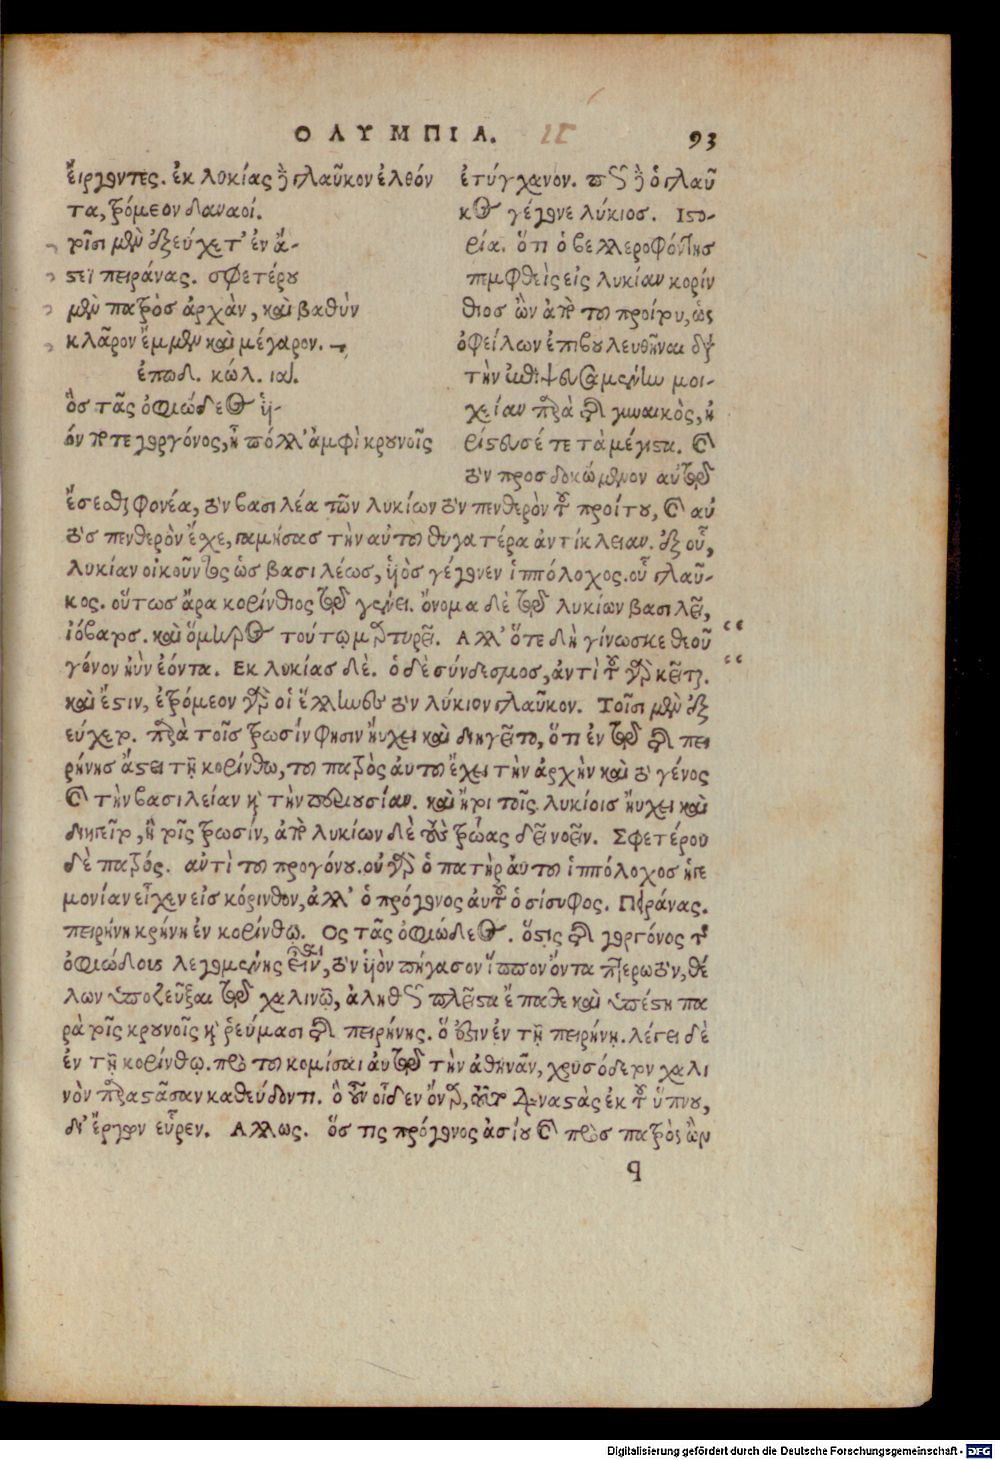 ΟΛΥΜΠΙΑ.
93
εἴργοντες. ἐκ λυκίας δὲ γλαῦκον ἐλθόν
τα, τρόμεον δαναοί.
τοῖσι μὲν ἐξεύχετ' ἐν ἄ-
στεϊ πειράνας. σφετέρου
μὲν πατρὸς ἀρχὰν, καὶ βαθὺν
κλᾶρον ἔμμεν καὶ μέγαρον.
ἐπῳδ. κώλ. ιαλ.
ὃς τᾶς ὀφιώδεος υἱ-
όν ποτε γοργόνος, ἦ πόλλ' ἀμφὶ κρουνοῖς
ἐτύγχανον. πῶς δὲ ὁ γλαῦ
κος γέγονε λύκιος. Ιστο-
ρία. ὅτι ὁ βελλεροφόντης
πεμφθεὶς εἰς λυκίαν κορίν
θιος ὢν ἀπὸ τοῦ προίτου, ὡς
ὀφείλων ἐπιβουλευθῆναι διὰ
τὴν ἐπιψευσαμένην μοι-
χείαν παρὰ τῆς γυναικὸς, ἠ
ρίστευσέ τε τὰ μέγιστα. καὶ
τὸν προσδοκώμενον αὐτοῦ
ἔσεσθαι φονέα, τὸν βασιλέα τῶν λυκίων τὸν πενθερὸν τοῦ προίτου, καὶ αὐ
τὸς πενθερὸν ἔσχε, γαμήσας τὴν αὐτοῦ θυγατέρα ἀντίκλειαν. ἐξ οὗ,
λυκίαν οἰκοῦντος ὡς βασιλέως, υἱὸς γέγονεν ἱππόλοχος. οὗ γλαῦ-
κος. οὕτως ἄρα κορίνθιος τῷ γένει. ὄνομα δὲ τῷ λυκίων βασιλεῖ,
ἰόβατος. καὶ ὅμηρος τούτῳ μαρτυρεῖ. Αλλ' ὅτε δὴ γίνωσκε θεοῦ
γόνον ἠῢν ἐόντα. Εκ λυκίας δέ. ὁ δὲ σύνδεσμος, ἀντὶ τοῦ γὰρ κεῖται.
καὶ ἔστιν, ἐτρόμεον γὰρ οἱ ἕλληνες τὸν λύκιον γλαῦκον. Τοῖσι μὲν ἐξ
εύχετο. παρὰ τοῖς τρωσίν φησιν ηὔχει καὶ διηγεῖτο, ὅτι ἐν τῷ τῆς πει
ρήνης ἄστει τῇ κορίνθῳ, τοῦ πατρὸς αὐτοῦ ἔχει τὴν ἀρχὴν καὶ τὸ γένος
καὶ τὴν βασιλείαν καὶ τὴν περιουσίαν. καὶ ἤτοι τοῖς λυκίοις ηὔχει καὶ
διηγεῖτο, ἢ τοῖς τρωσίν, ἀπὸ λυκίων δὲ τοὺς τρῶας δεῖ νοεῖν. Σφετέρου
δὲ πατρός. αὐτὶ τοῦ προγόνου. οὐ γὰρ ὁ πατὴρ αὐτοῦ ἱππόλοχος ἡγε
μονίαν εἶχεν εἰς κόρινθον, ἀλλ' ὁ πρόγονος αὐτοῦ ὁ σίσυφος. Πειράνας.
πειρήνη κρήνη ἐν κορίνθῳ. Ος τᾶς ὀφιώδεος. ὅστις τῆς γοργόνος τῆς
ὀφιώδους λεγομένης εἶναι, τὸν υἱὸν πήγασον ἵππον ὄντα πτερωτὸν, θέ
λων ὑποζεῦξαι τῷ χαλινῷ, ἀληθῶς πλεῖστα ἔπαθε καὶ ὑπέστη πα
ρὰ τοῖς κρουνοῖς καὶ ῥεύμασι τῆς πειρήνης. ὅ ἐστιν ἐν τῇ πειρήνῃ. λέγει δὲ
ἐν τῇ κορίνθῳ. πρὸ τοῦ κομίσαι αὐτῷ τὴν ἀθηνᾶν, χρυσόδετον χαλι
νὸν παραστᾶσαν καθεύδοντι. ὃ οὖν οἶδεν ὄναρ, τοῦτο διαναστὰς ἐκ τοῦ ὕπνου,
δι' ἔργων εὗρεν. Αλλως. ὅς τις πρόγονος ἀσίου καὶ πρὸς πατρὸς ὢν
q
Digitalisierung gefördert durch die Deutsche Forschungsgemeinschaft - DFG